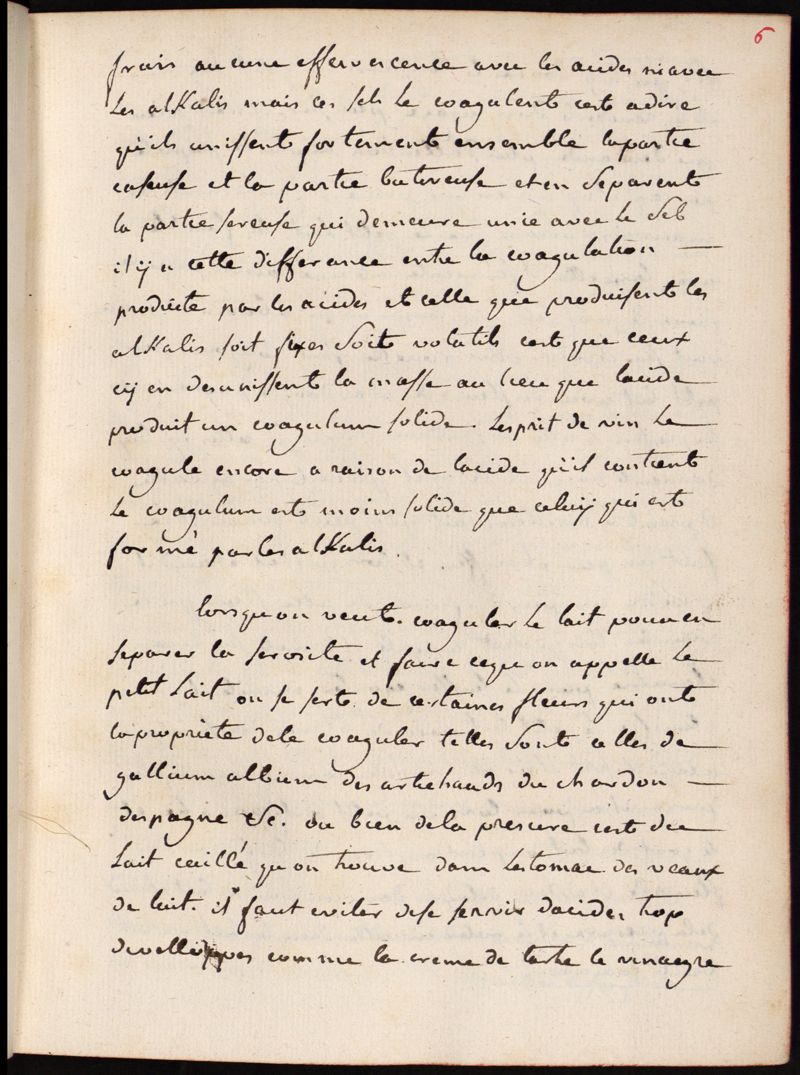 6
frais aucune effervescence avec les acides ni avec
les alKalis mais ces sels le coagulent cest adire
qu'ils unissent fortement ensemble la partie
caseuse et la partie butireuse et en separent
la partie sereuse qui demeure unie avec le sel
il y a cette differance entre la coagulation —
produite par les acides et celle que produisent les
alKalis soit fixes soit volatils cest que ceux
cy en desunissent la masse au lieu que lacide
produit un coagulum solide. Lesprit de vin le
coagule encore a raison de lacide qu'il contient
le coagulum est moins solide que celuy qui est
formé par les alKalis.
lorsquon veut coaguler le lait pour en
separer la serosite et faire cequ on appelle le
petit Lait on se sert de certaines fleurs qui ont
la propriete dele coaguler telles sont celles de
gallium album des artichauds du chardon —
despagne &c. ou bien dela presure cest du
Lait caillé qu'on trouve dans Lestomac des veaux
de lait. il faut eviter dese servir dacides trop
develloppes comme la creme de tartre le vinaegre